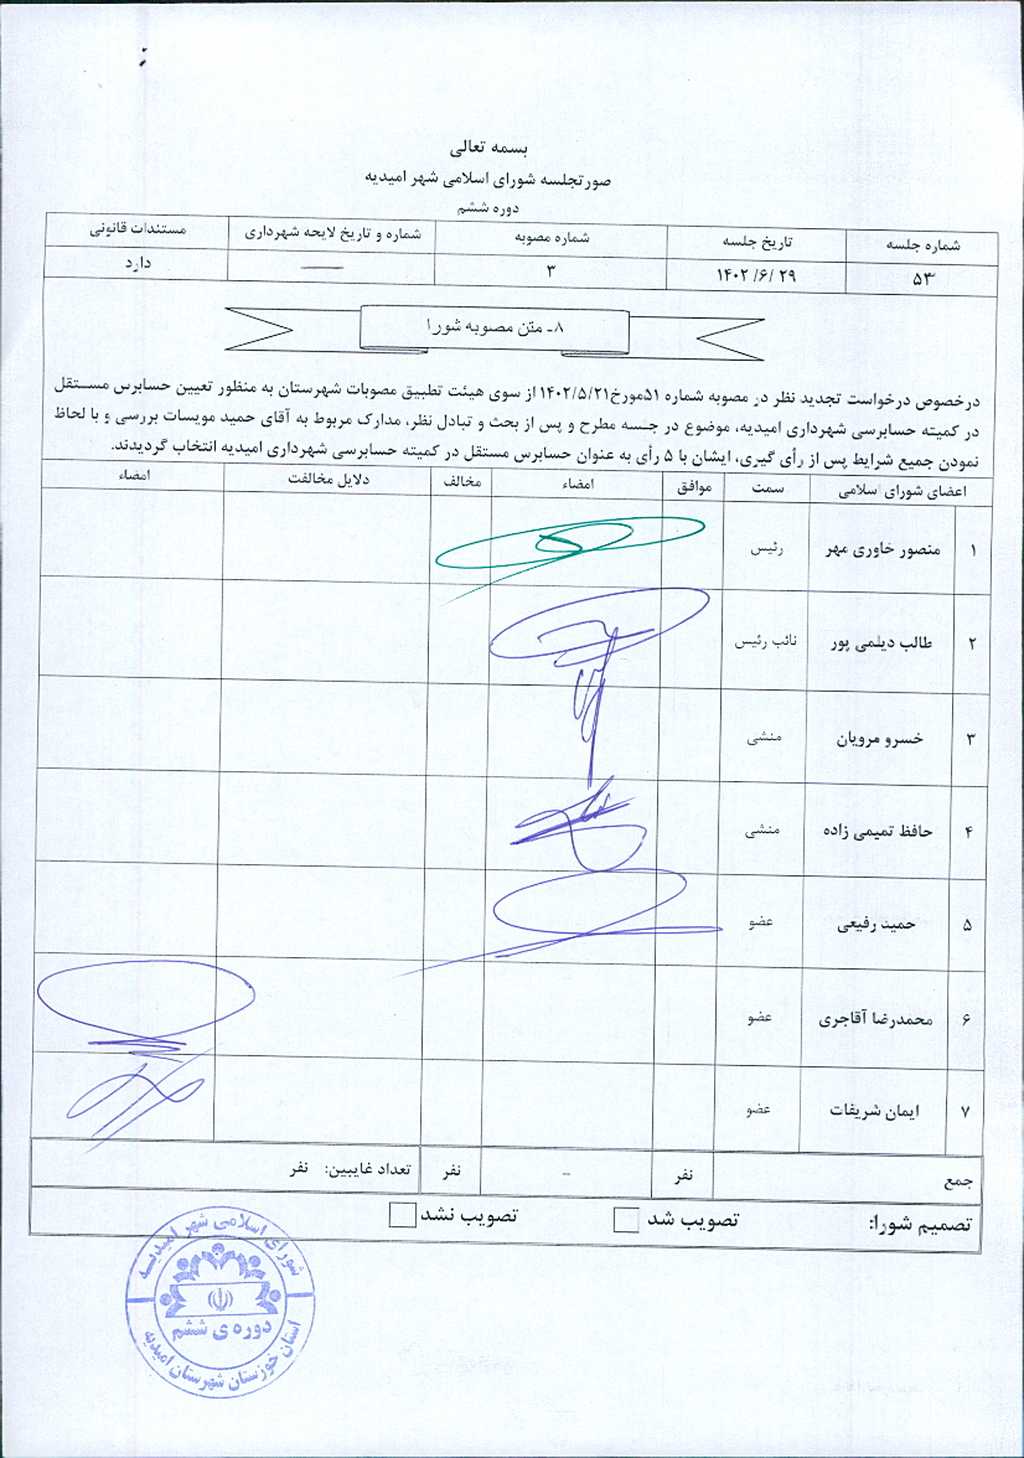 بسمه تعالی
صورتجلسه شورای اسلامی شهر امیدیه
دوره ششم
شماره جلسه تاریخ جلسه شماره مصوبه شماره و تاریخ لایحه شهرداری مستندات قانونی
۵۳ ۱۴۰۲/۶/۲۹ ۳ —— دارد
۸- متن مصوبه شورا
درخصوص درخواست تجدید نظر در مصوبه شماره ۵۱مورخ۱۴۰۲/۵/۲۱ از سوی هیئت تطبیق مصوبات شهرستان به منظور تعیین حسابرس مستقل
در کمیته حسابرسی شهرداری امیدیه، موضوع در جلسه مطرح و پس از بحث و تبادل نظر، مدارک مربوط به آقای حمید مویسات بررسی و با لحاظ
نمودن جمیع شرایط پس از رأی گیری، ایشان با ۵ رأی به عنوان حسابرس مستقل در کمیته حسابرسی شهرداری امیدیه انتخاب گردیدند.
اعضای شورای اسلامی سمت موافق امضاء مخالف دلایل مخالفت امضاء
۱ منصور خاوری مهر رئیس
۲ طالب دیلمی پور نائب رئیس
۳ خسرو مرویان منشی
۴ حافظ تمیمی زاده منشی
۵ حمید رفیعی عضو
۶ محمدرضا آقاجری عضو
۷ ایمان شریفات عضو
جمع نفر – نفر تعداد غایبین: نفر
تصمیم شورا: تصویب شد تصویب نشد
شورای اسلامی شهر امیدیه
دوره ی ششم
استان خوزستان شهرستان امیدیه